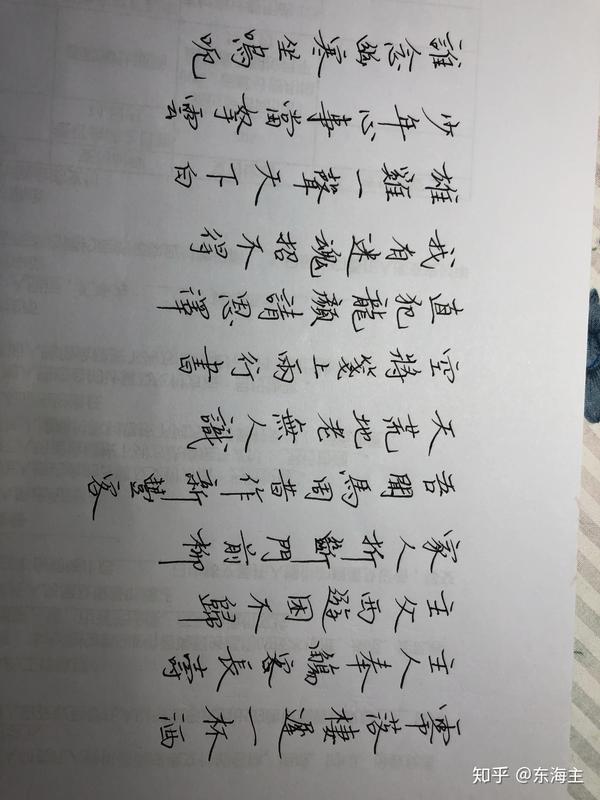 零落棲遲一杯酒
主人奉觴客長壽
主父西遊困不歸
家人折斷門前柳
吾聞馬周昔作新豐客
天荒地老無人識
空將箋上兩行書
直犯龍顏請恩澤
我有迷魂招不得
雄雞一聲天下白
少年心事當拏雲
誰念幽寒坐嗚呃
知乎 @东海主